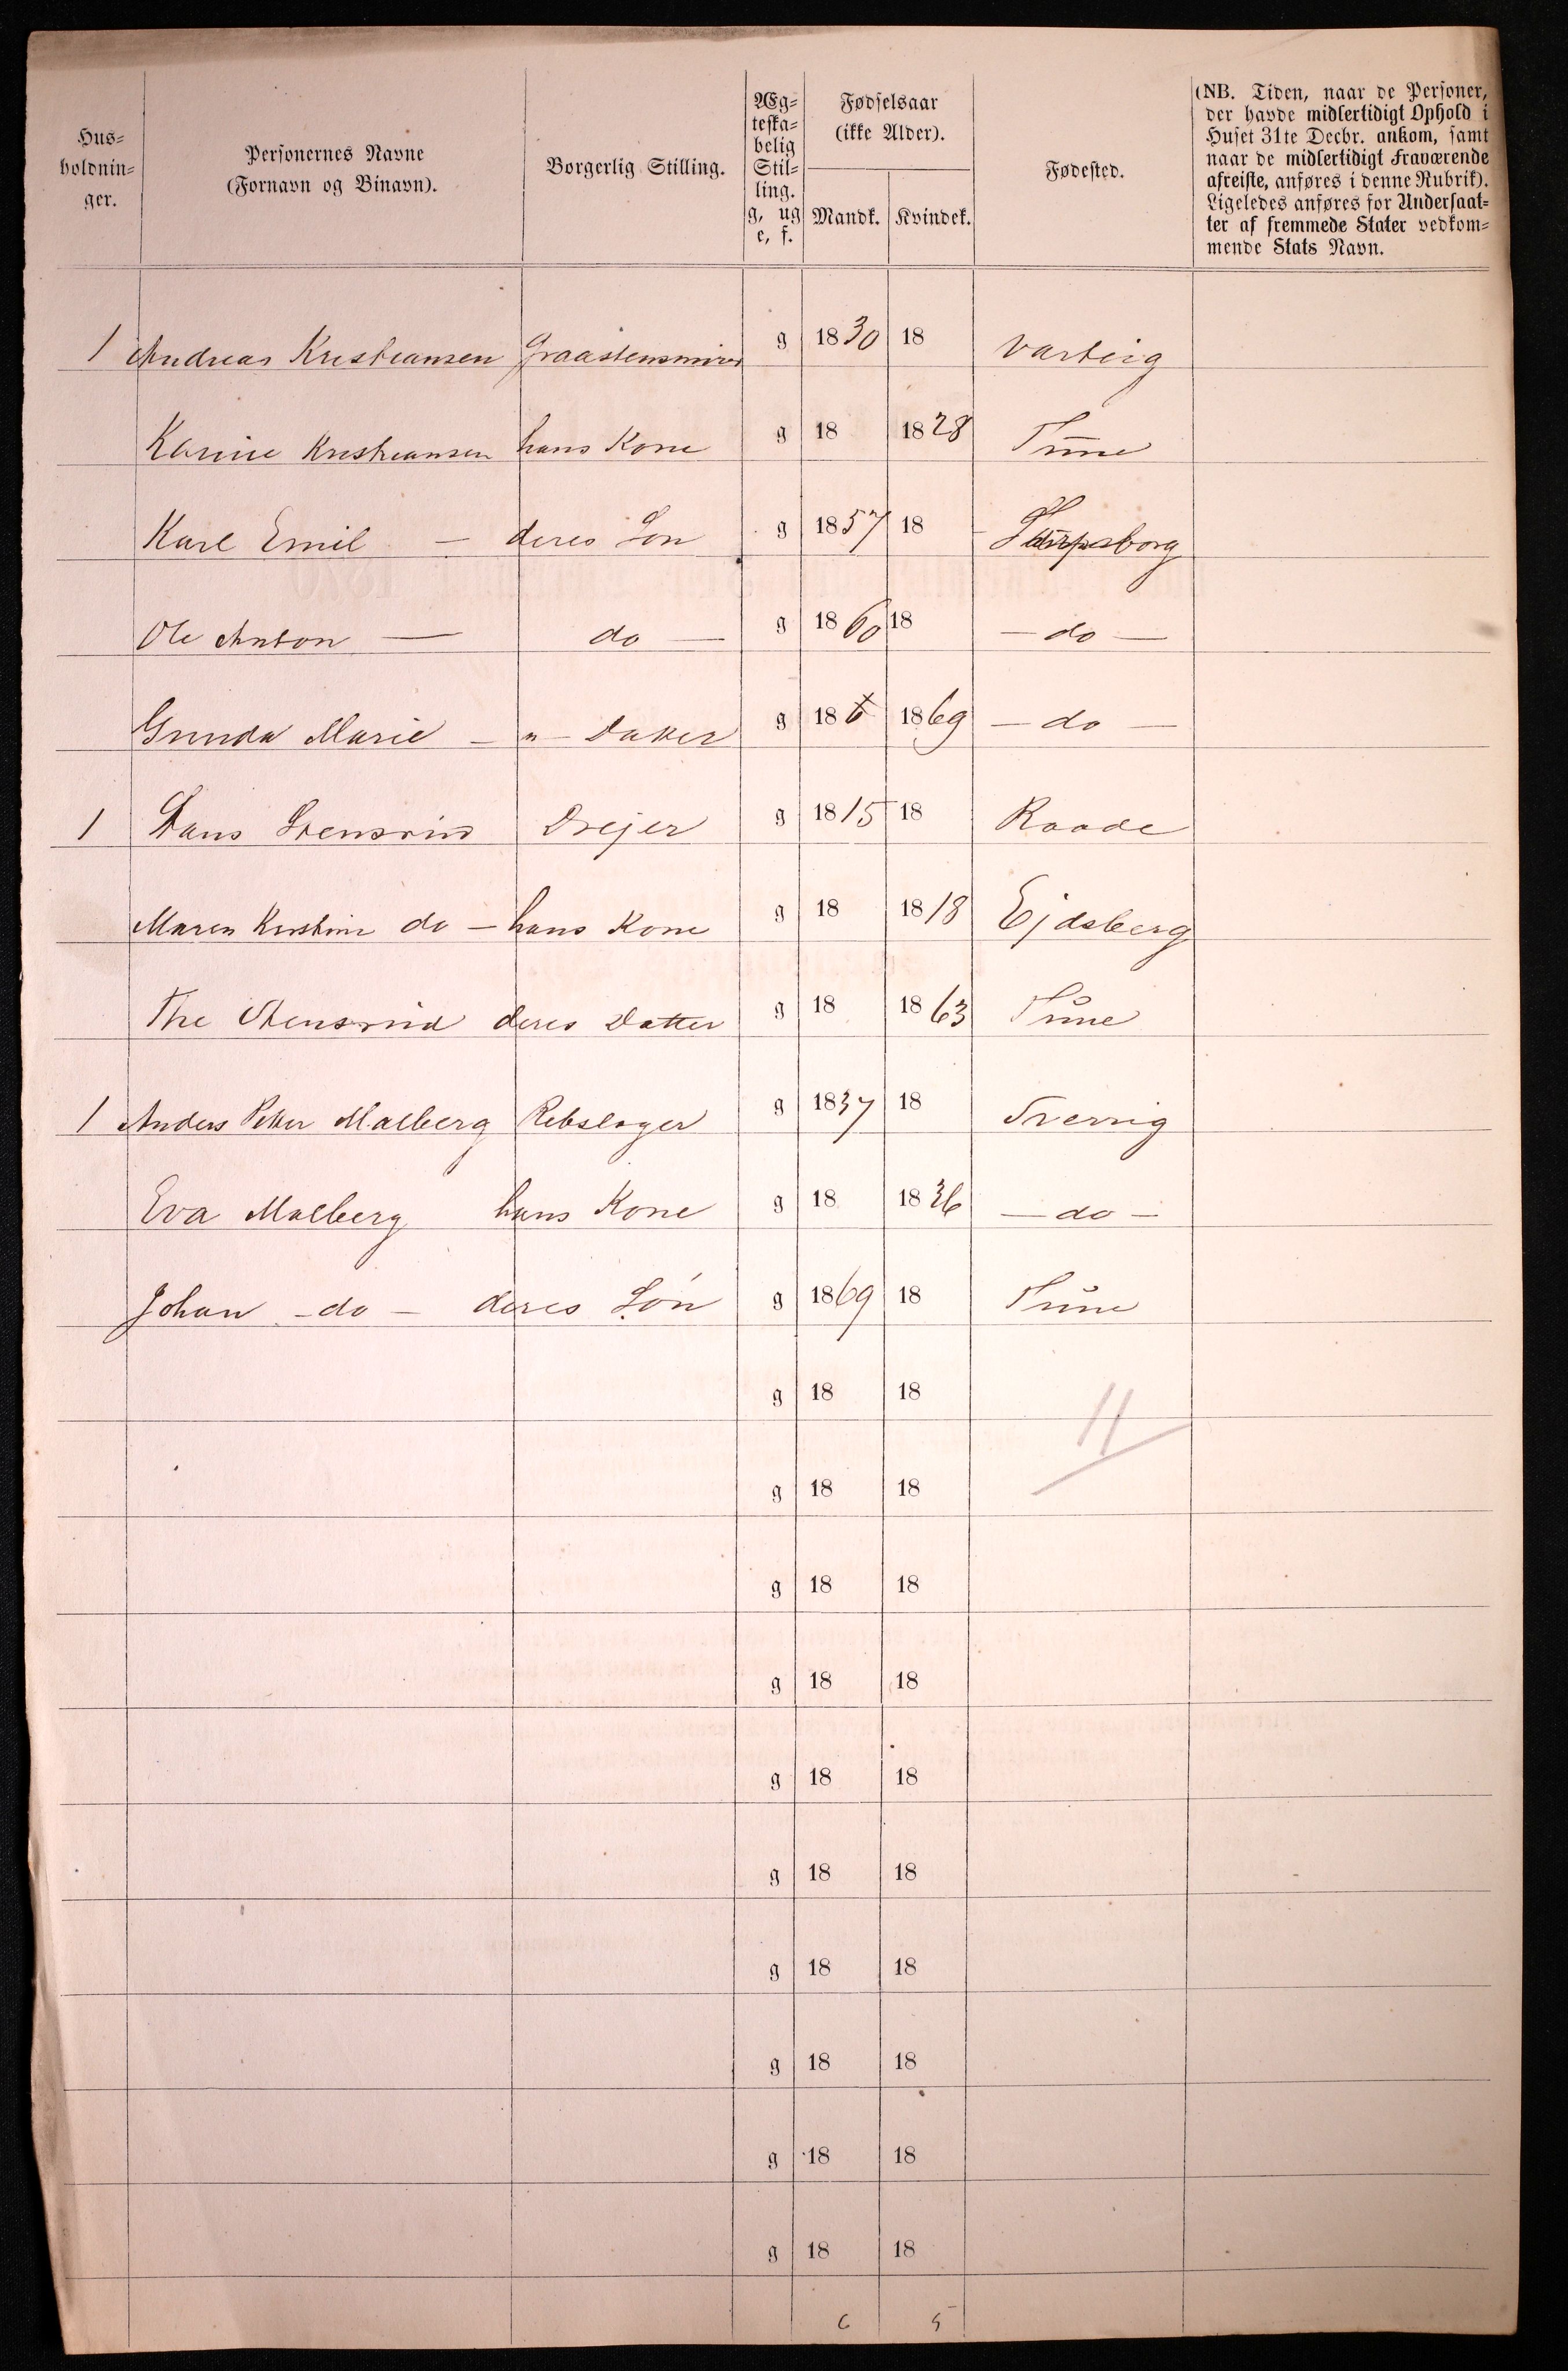 Hus-
holdnin-
ger.
Personernes Navne
(Fornavn og Binavn).
Borgerlig Stilling.
Æg-
teska-
belig
Stil-
ling.
g, ug
e, f.
Fødselsaar
(ikke Alder).
Mandk. Kvindek.
Fødested.
(NB. Tiden, naar de Personer,
der havde midlertidigt Ophold i
Huset 31te Decbr. ankom, samt
naar de midlertidigt Fraværende
afreiste, anføres i denne Rubrik).
Ligeledes anføres for Undersaat-
ter af fremmede Stater vedkom-
mende Stats Navn.
1 Andreas Kristeansen Graastensminer g 1830 18 Varteig
Karine Kristeansen hans Kone g 18 1828 Tune
Karl Emil — deres Son g 1857 18 Sarpsborg
Ole Anton — do — g 1860 18 — do —
Gunda Marie — " — Datter g 186 1869 — do —
1 Hans Stensrud Drejer g 1815 18 Raade
Maren Kristine do — hans Kone g 18 1818 Ejdsberg
The Stensrud deres Datter g 18 1863 Tune
1 Anders Peter Malberg Rebslager g 1837 18 Sverrig
Eva Malberg hans Kone g 18 1836 — do —
Johan - do - deres Søn g 1869 18 Tune
g 18 18
11
g 18 18
g 18 18
g 18 18
g 18 18
g 18 18
g 18 18
g 18 18
g 18 18
g 18 18
6 5